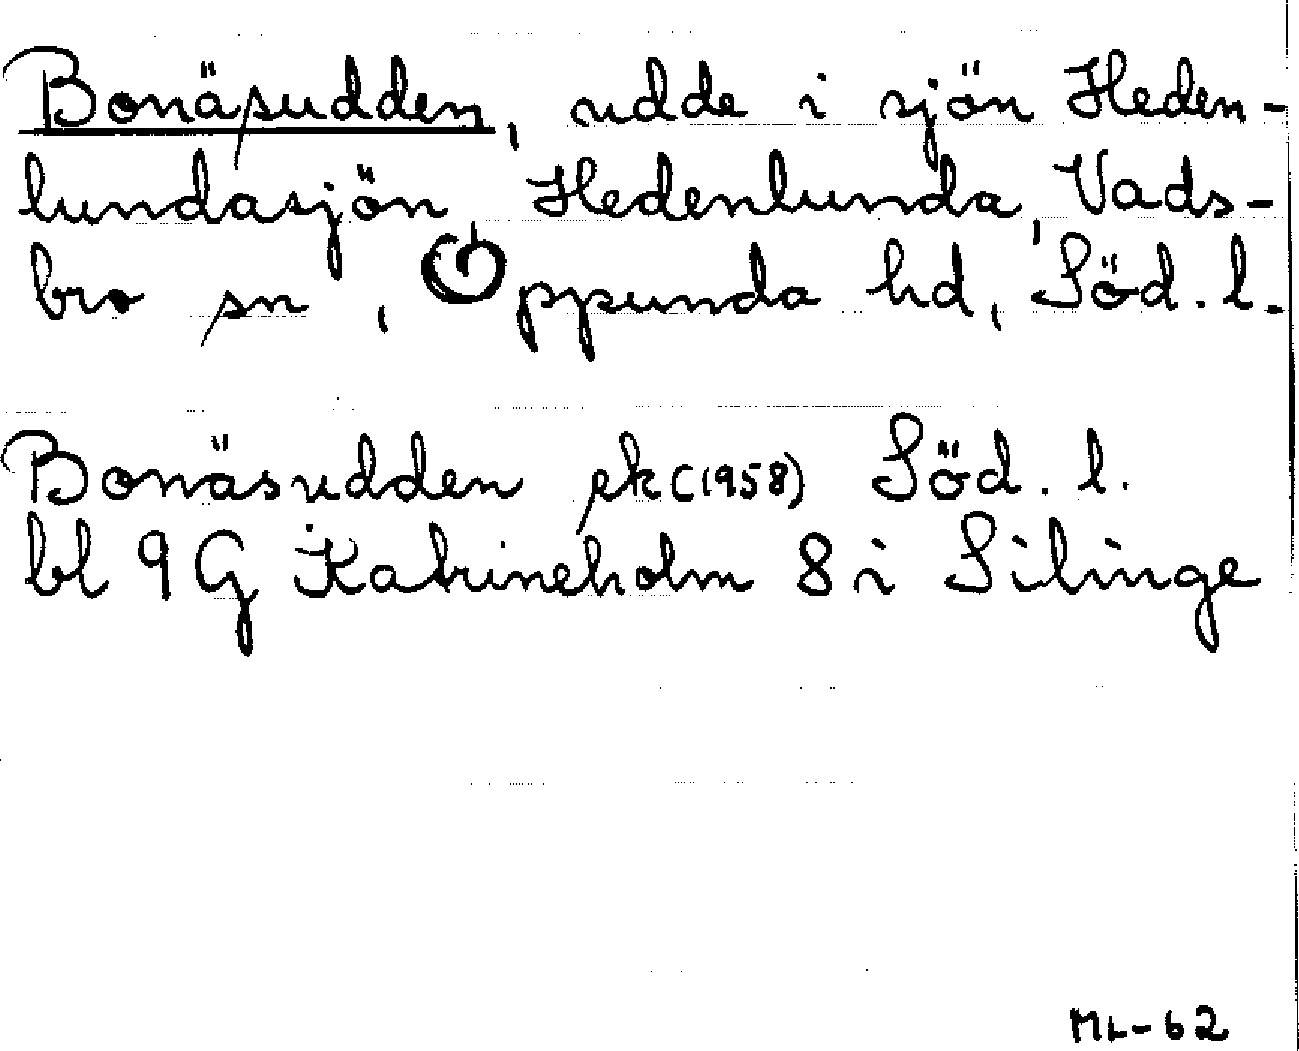 Bonäsudden, udde i sjön Heden-
lundasjön, Hedenlunda, Vads-
bro sn, Oppunda hd, Söd. l.
Bonäsudden ek (1958) Söd. l.
bl 9G Katrineholm 8 i Silinge
ML-62